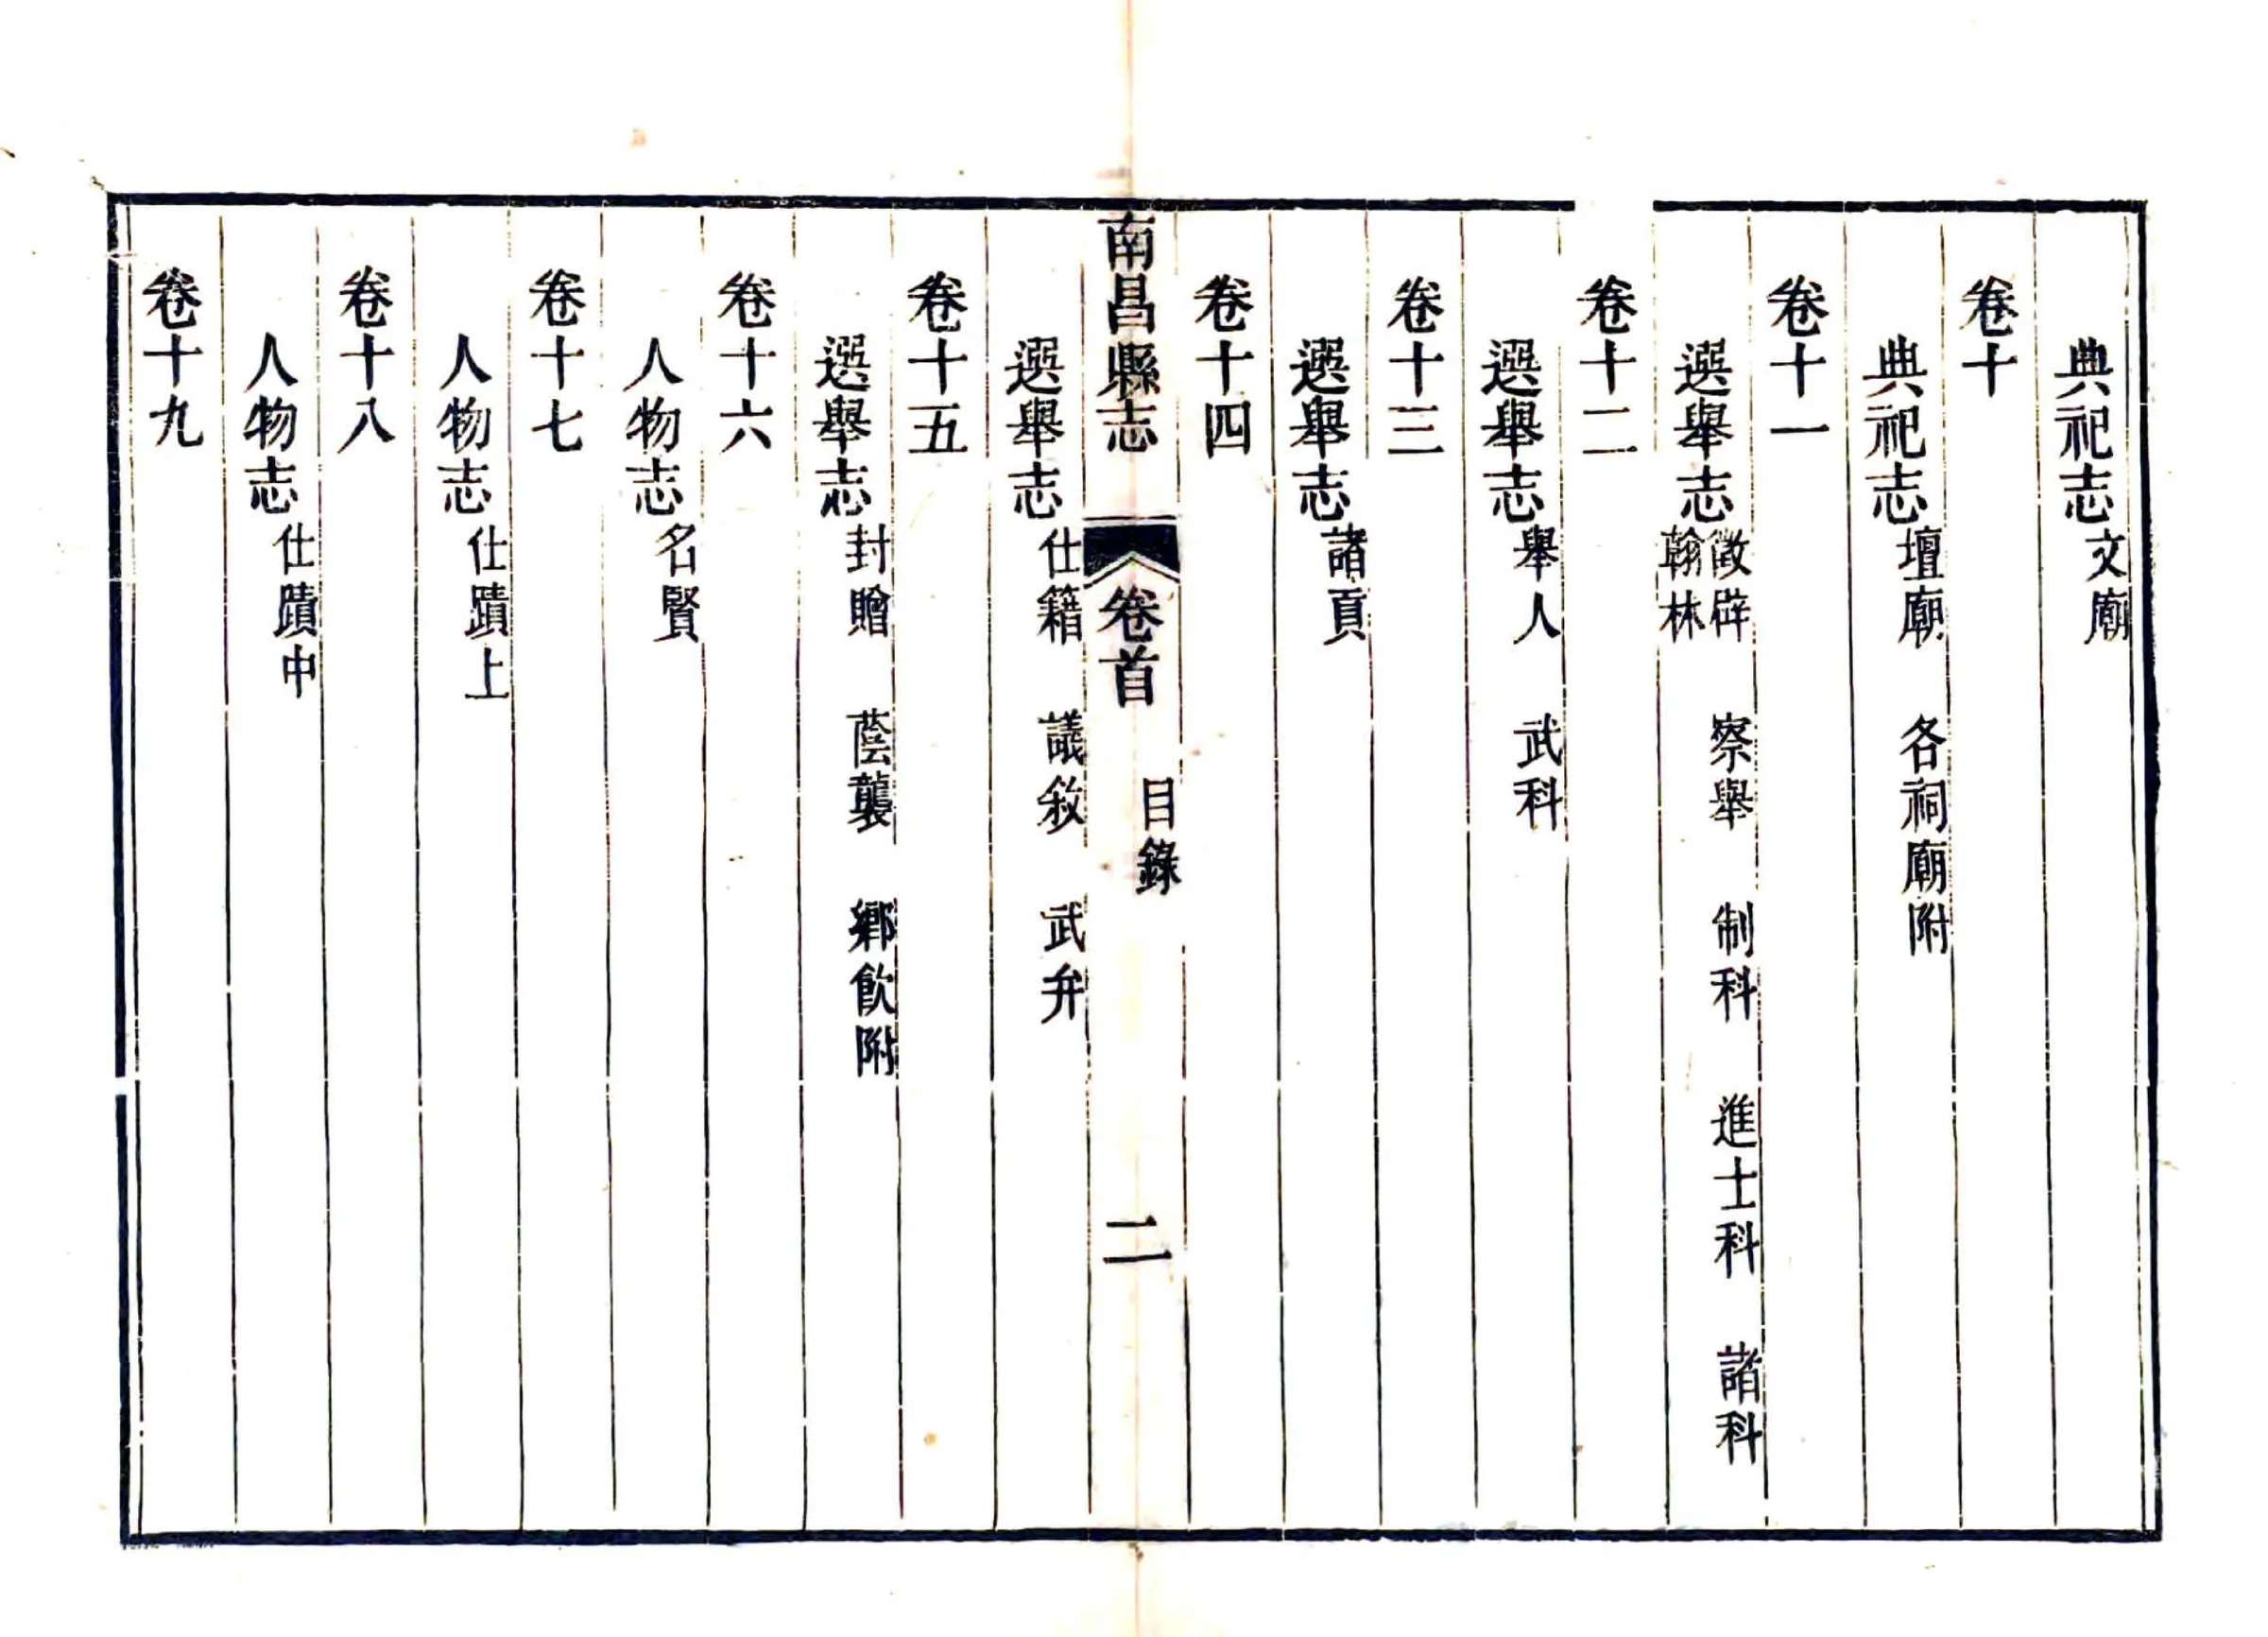 典祀志文廟
卷十
典祀志壇廟　各祠廟附
卷十一
選舉志徵辟　察舉　制科　進士科　諸科
翰林
卷十二
選舉志舉人　武科
卷十三
選舉志諸貢
卷十四
南昌縣志　卷首　目錄　二
選舉志仕籍　議敘　武弁
卷十五
選舉志封贈　蔭襲　鄉飲附
卷十六
人物志名賢
卷十七
人物志仕蹟上
卷十八
人物志仕蹟中
卷十九